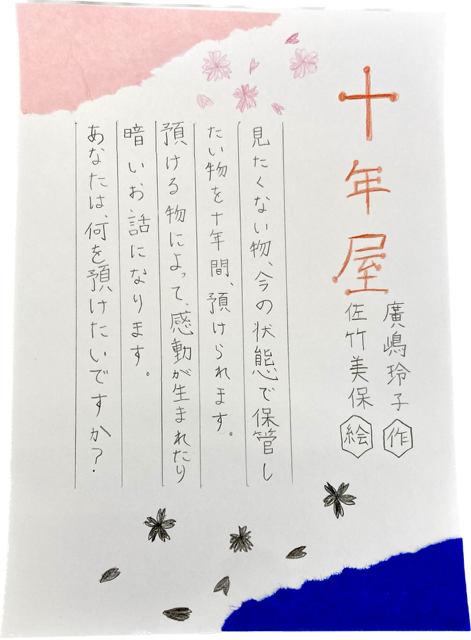 十年屋
廣嶋玲子 作
佐竹美保 絵
見たくない物、今の状態で保管し
たい物を十年間、預けられます。
預ける物によって、感動が生まれたり
暗いお話になります。
あなたは、何を預けたいですか？